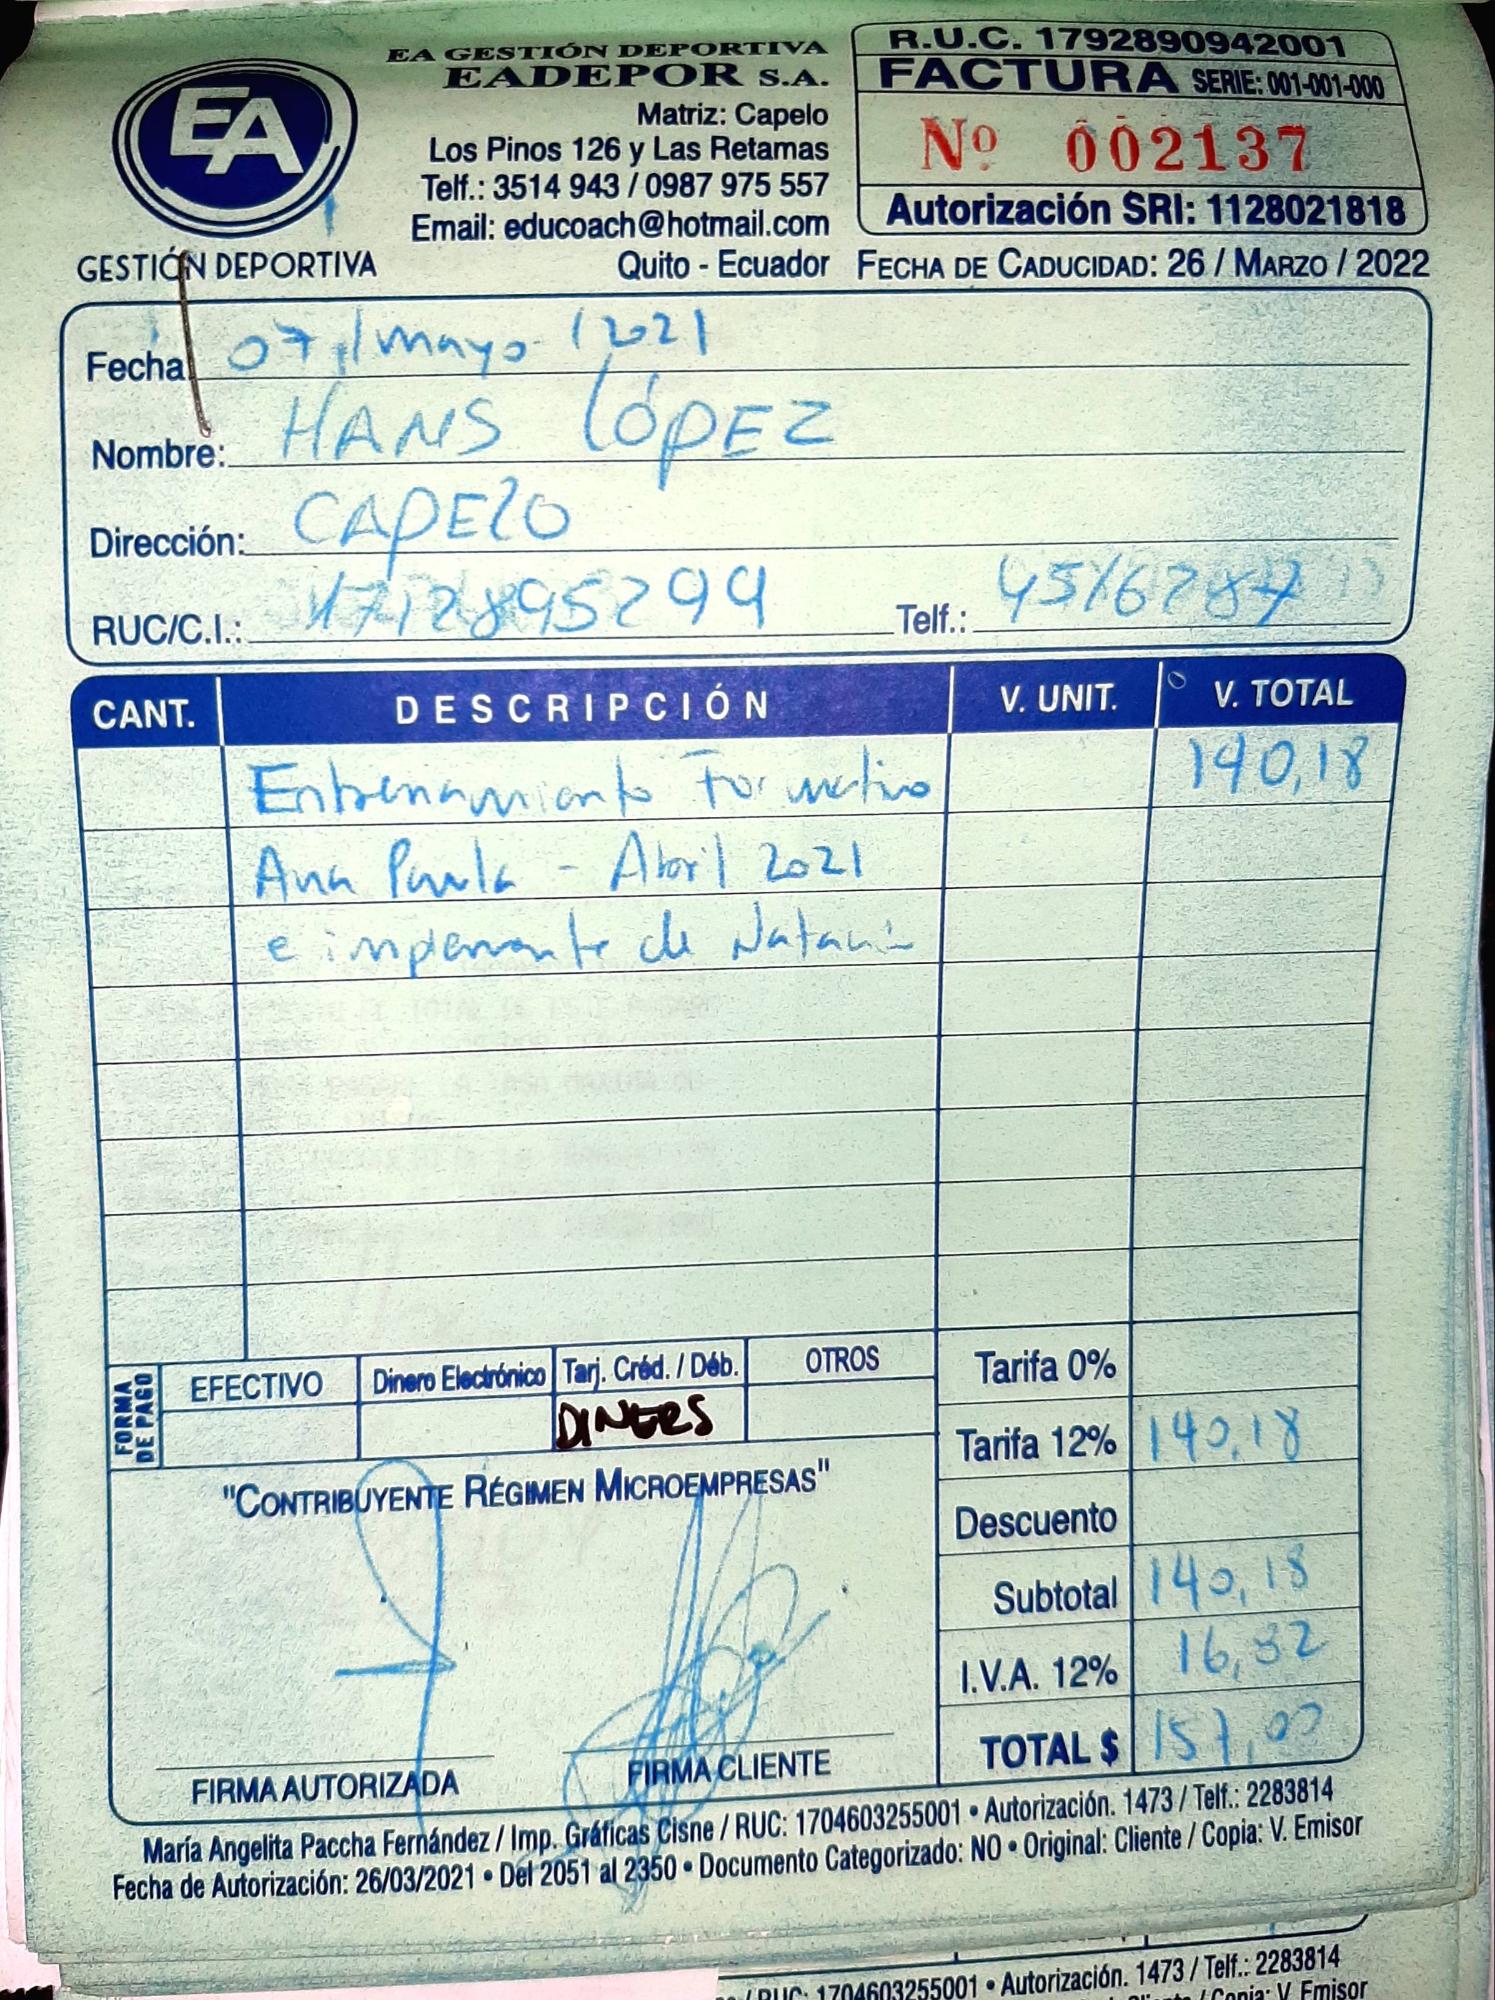 EA
GESTIÓN DEPORTIVA
EA GESTIÓN DEPORTIVA
EADEPOR S.A.
Matriz: Capelo
Los Pinos 126 y Las Retamas
Telf.: 3514 943 / 0987 975 557
Email: educoach@hotmail.com
Quito - Ecuador
R.U.C. 1792890942001
FACTURA SERIE: 001-001-000
Nº 002137
Autorización SRI: 1128021818
FECHA DE CADUCIDAD: 26 / MARZO / 2022
Fecha 07/mayo/2021
Nombre: HANS LÓPEZ
Dirección: CAPELO
RUC/C.I.: 1712895299 Telf.:
CANT. DESCRIPCIÓN V. UNIT. V. TOTAL
Entrenamiento Formativo 140,18
Ana Paula - Abril 2021
e implemento de Natación
FORMA DE PAGO
EFECTIVO Dinero Electrónico Tarj. Créd. / Déb. OTROS
DINERS
Tarifa 0%
Tarifa 12% 140,18
Descuento
Subtotal 140,18
I.V.A. 12% 16,82
TOTAL $ 157,00
"CONTRIBUYENTE RÉGIMEN MICROEMPRESAS"
FIRMA AUTORIZADA FIRMA CLIENTE
María Angelita Paccha Fernández / Imp. Gráficas Cisne / RUC: 1704603255001 • Autorización. 1473 / Telf.: 2283814
Fecha de Autorización: 26/03/2021 • Del 2051 al 2350 • Documento Categorizado: NO • Original: Cliente / Copia: V. Emisor
/ RUC: 1704603255001 • Autorización. 1473 / Telf.: 2283814
/ Copia: V. Emisor